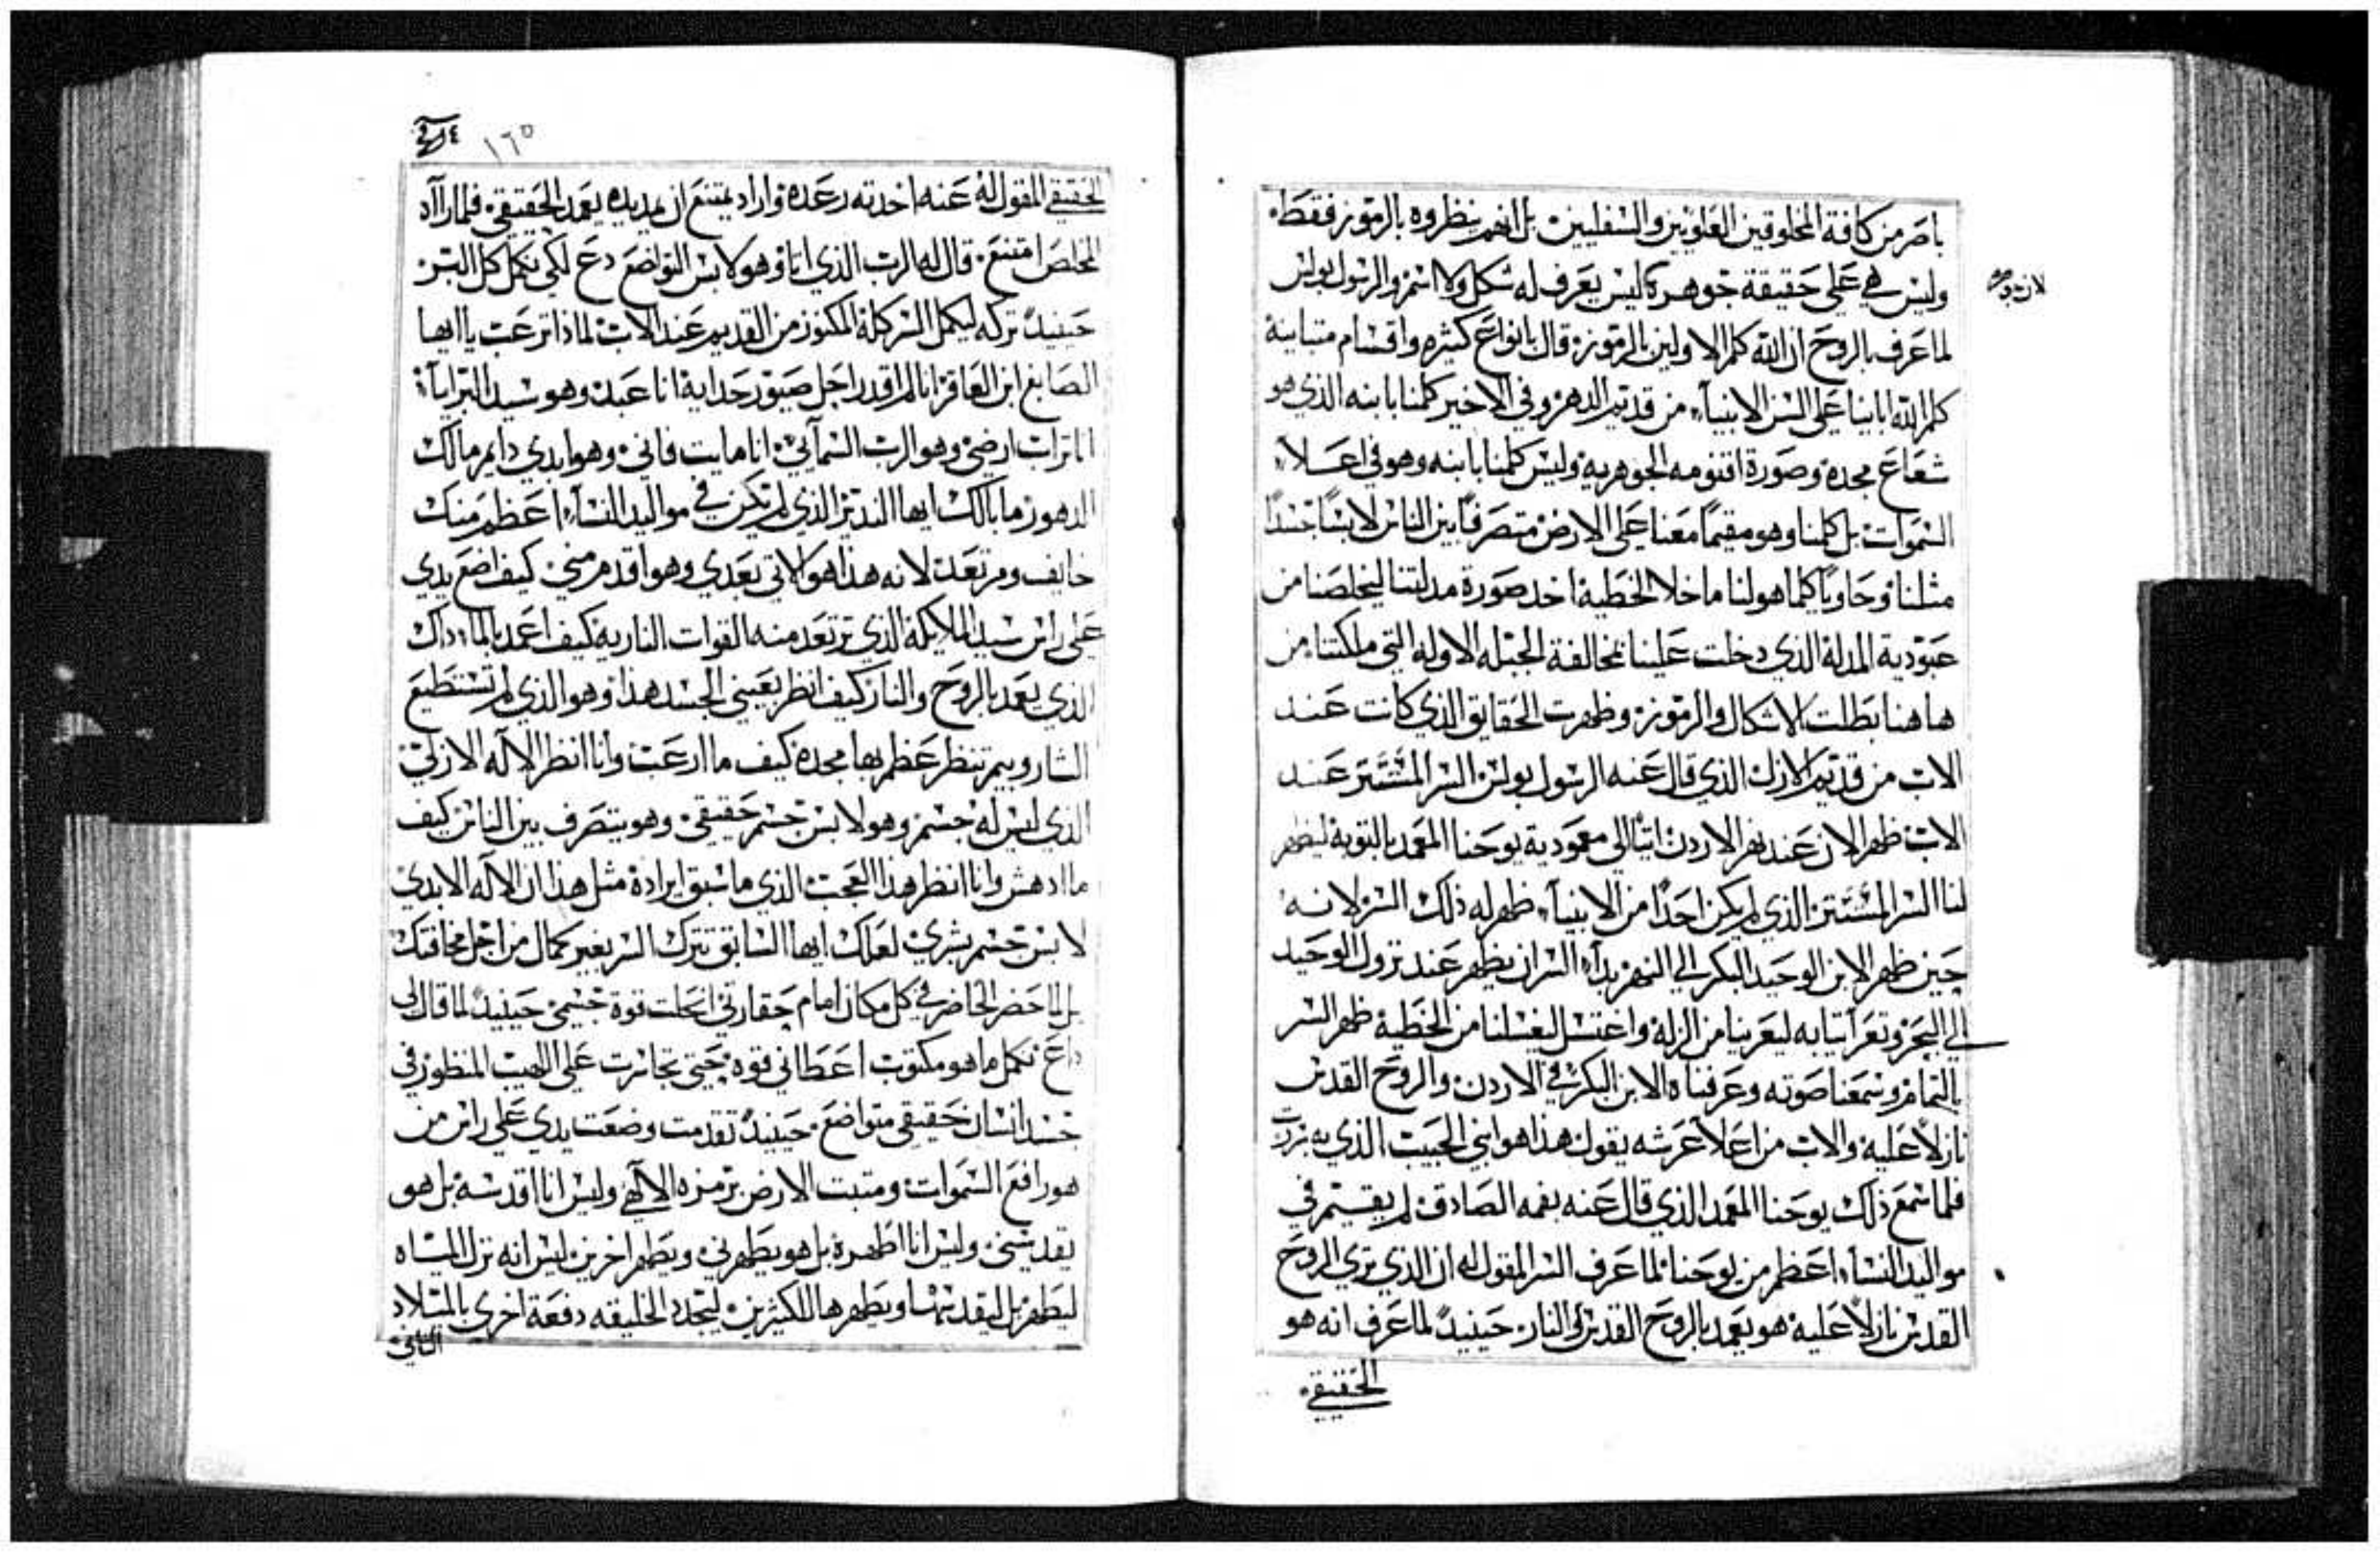 باصر من كافة المخلوقين العلويين والسفليين بل انهم ينظروه بالرموز فقط
وليس هي على حقيقة جوهره ليس يعرف له شكل ولا اسم والرسول بولس
لان جوهره
لما عرف بالروح ان الله كلم الاولين بالرموز قال بانواع كثيره واقسام متباينة
كلم الله اباينا على السن الانبياء من قديم الدهر وفي الاخير كلمنا بابنه الذي هو
شعاع مجده وصورة اقنومه الجوهريه وليس كلمنا بابنه وهو في اعلاء
السموات بل كلمنا وهو مقيماً معنا على الارض متصرفاً بين الناس لابساً جسداً
مثلنا وحاوياً كلما هو لنا ما خلا الخطية اخد صورة مدلتنا ليخلصنا من
عبودية المدلة الذي دخلت علينا بمخالفة الجبله الاوله التي ملكتنا من
هاهنا بطلت الاشكال والرموز وظهرت الحقايق الذي كانت عند
الاب من قديم الازل الذي قال عنه الرسول بولس السر المستتر عند
الاب ظهر الان عند نهر الاردن اتياً الى معمودية يوحنا المعمد بالتوبة ليظهر
لنا السر المستتر الذي لم يكن احداً من الانبياء ظهر له ذلك السر لانه
حين ظهر الابن الوحيد البكر الي النهر بداء السر ان يظهر عند نزول الوحيد
الي البحر وتعرا ثيابه ليعرينا من الزلة واغتسل ليغسلنا من الخطية ظهر السر
بالتمام وسمعنا صوته وعرفناه الابن البكر في الاردن والروح القدس
نازلاً عليه والاب من اعلا عرشه يقول هذا هو ابني الحبيب الذي به سررت
فلما سمع ذلك يوحنا المعمد الذي قال عنه بفمه الصادق لم يقيم في
مواليد النساء اعظم من يوحنا لما عرف السر المقول له ان الذي تري الروح
القدس نازلاً عليه هو يعمد بالروح القدس والنار حينيدٍ لما عرف انه هو
الحقيقي
١٦٥
الحقيقي المقول له عنه اخدته رعده واراد يمتنع ان يمد يده يعمد الحقيقي فلما راآه
المخلص امتنع قال له الرب الذي اتا وهو لابس التواضع دع لكي نكمل كل البر
حينيدٍ تركه ليكمل السر كلة المكنوز من القديم عند الاب لماذا ترعب ياايها
الصابغ ابن العاقر انا لم اقدر احل صيور حدايه انا عبد وهو سيد البرايآ
انا تراب ارضي وهو الرب السمآئي انا مايت فاني وهو ابدي دايم مالك
الدهور ما بالك ايها الندير الذي لم تكن في مواليد النسآء اعظم منك
خايف ومرتعد لانه هذا هو الاتي بعدي وهو اقدم مني كيف اضع يدي
على راس سيد الملايكة الذي ترتعد منه القوات الناريه كيف اعمد بالماء داك
الذي يعمد بالروح والنار كيف انظر بعيني الجسد هذا وهو الذي لم تستطيع
الشاروبيم تنظر عظم بها مجده كيف ما ارعب وانا انظر الاله الازلي
الذي ليس له جسم وهو لابس جسم حقيقي وهو يتصرف بين الناس كيف
ما ادهش وانا انظر هذا العجب الذي ما سبق ايراده مثل هذا ان الاله الابدي
لابس جسم بشري لعلك ايها السابق تترك السر بغير كمال من اجل مخافتك
بل لما حضر الحاضر في كل مكان امام حقارتي انحلت قوة جسمي حينيدٍ لما قال لي
داع نكمل ما هو مكتوب اعطاني قوه حتى تجاسرت على اللهيب المنظور في
جسد انسان حقيقي متواضع حينيدٍ تقدمت وضعت يدي على راس من
هو رافع السموات ومتبت الارض برمزه الالهي وليس انا اقدسه بل هو
يقدسني وليس انا اطهره بل هو يطهرني ويطهر اخرين ليس انه نزل المياه
ليطهر بل ليقدسها ويطهرها للكثيرين ليتجدد الخليقه دفعة اخرى بالميلاد
الثاني